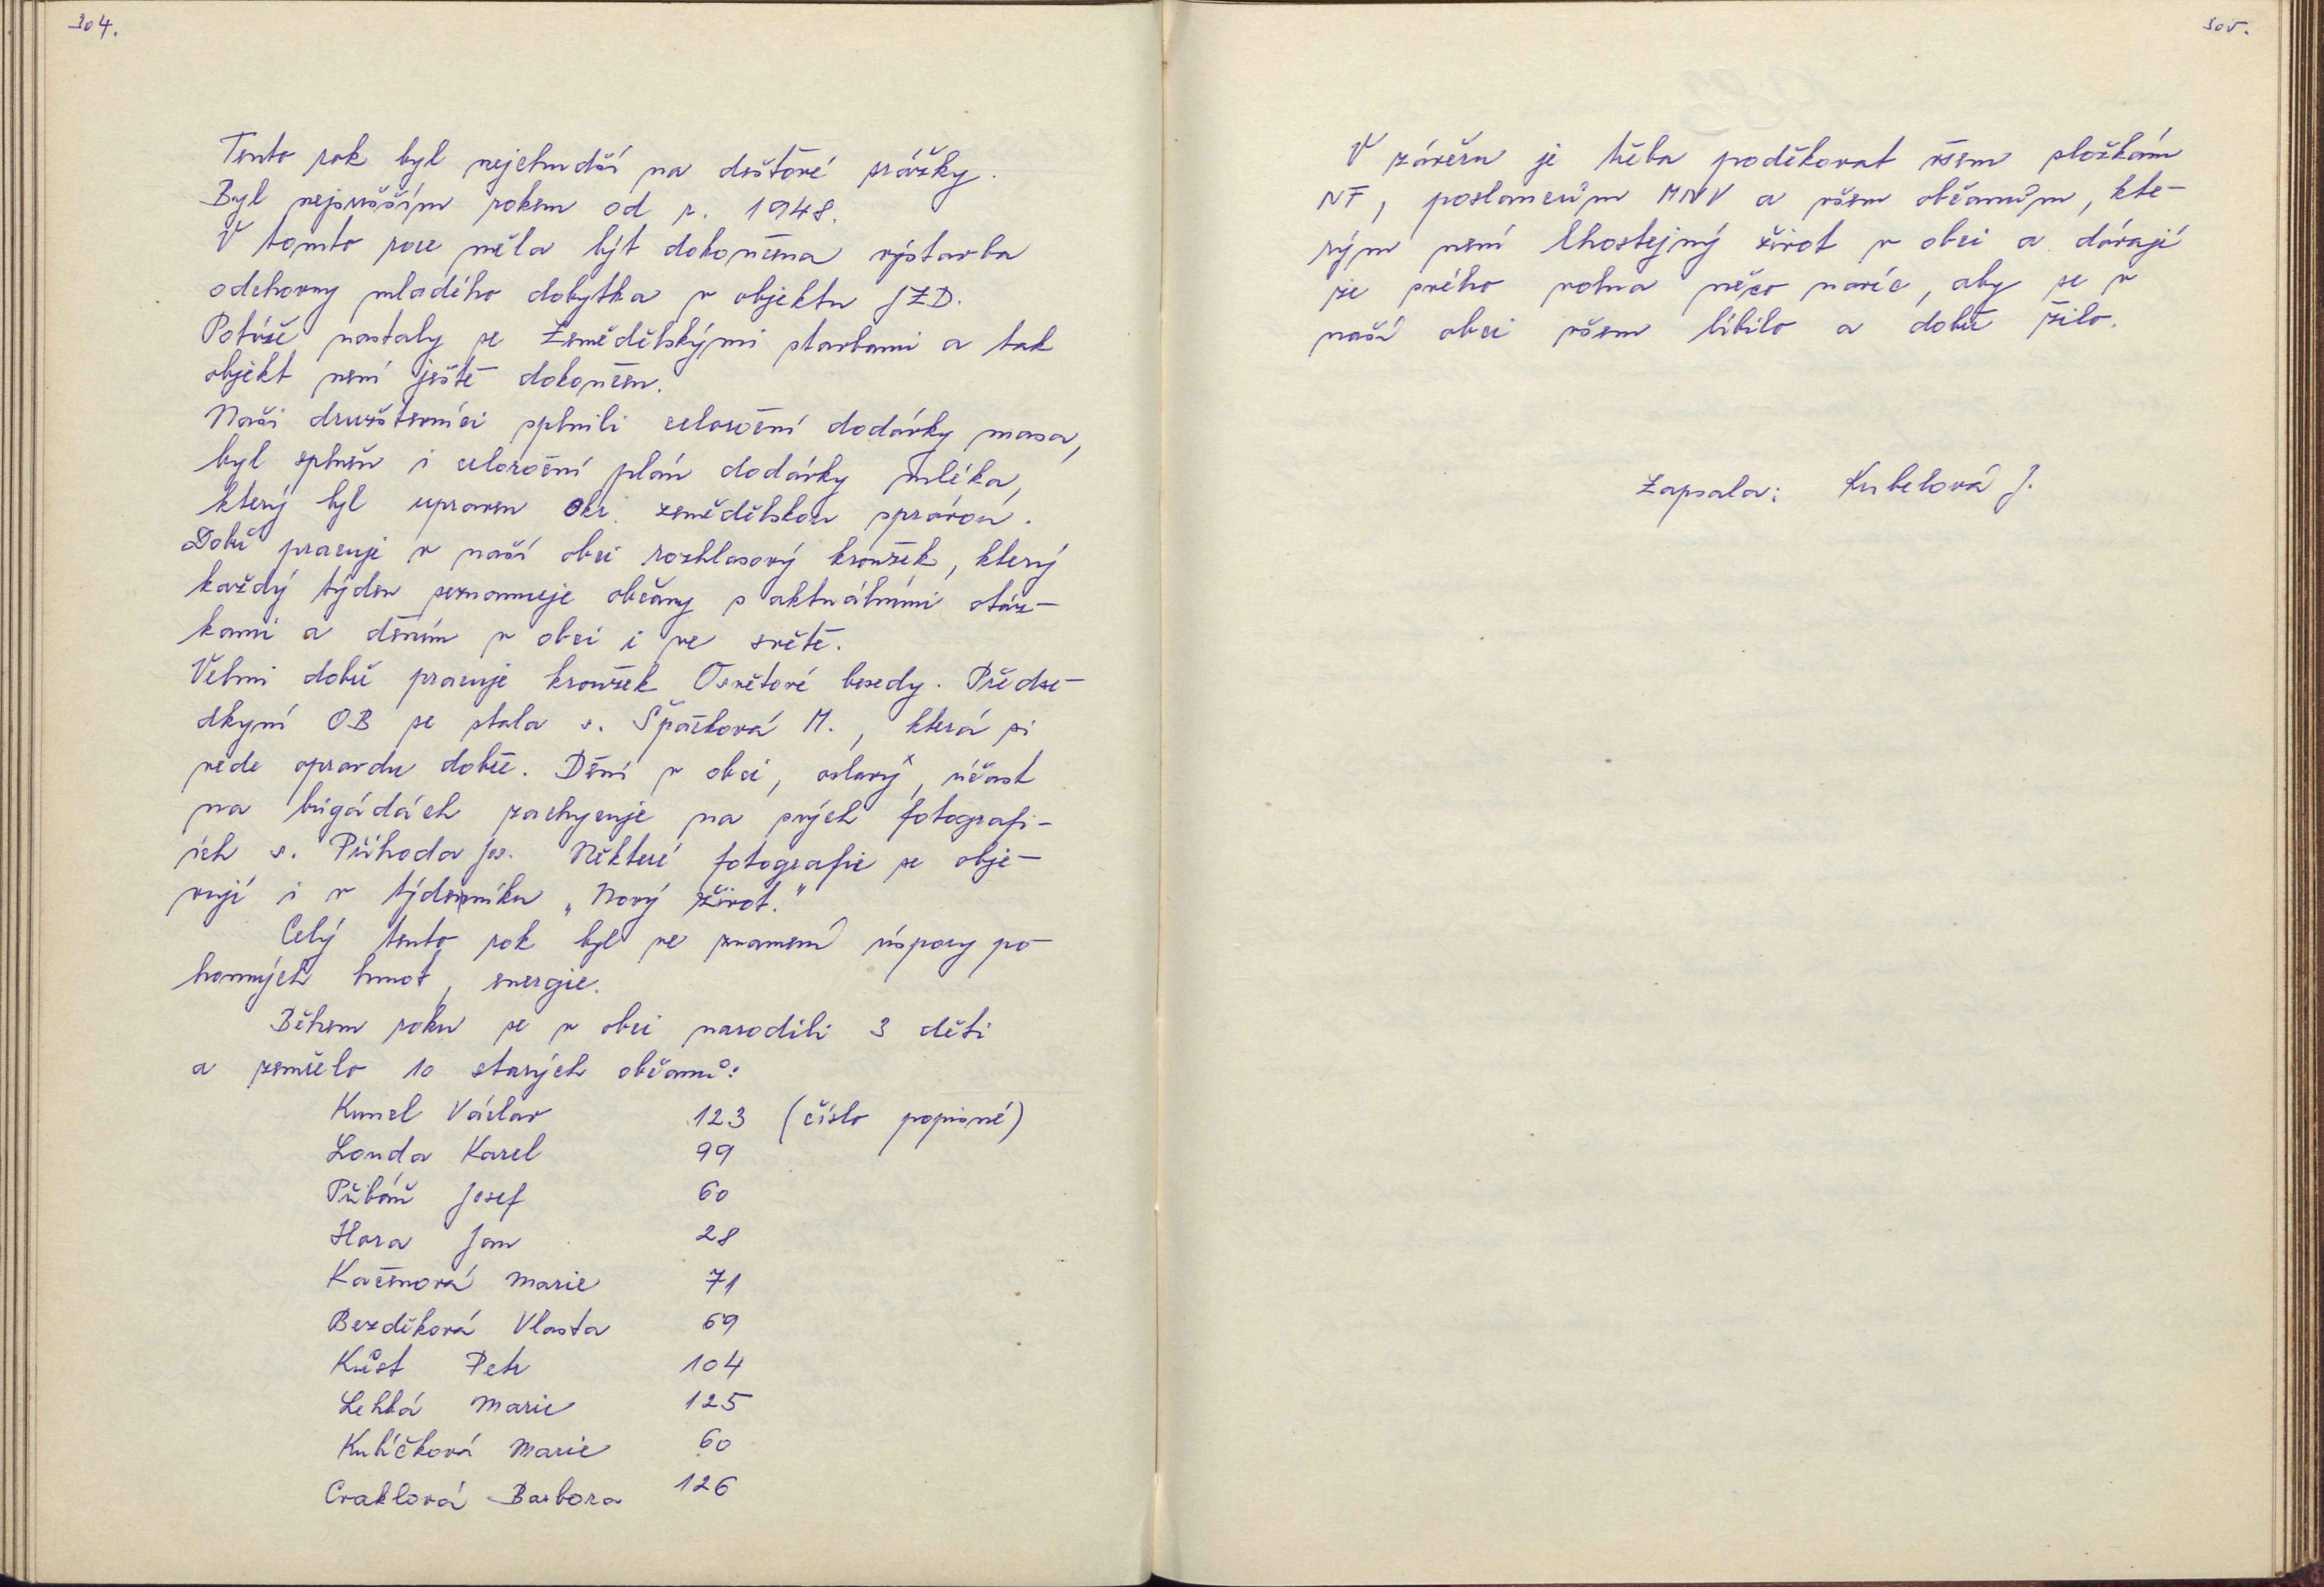 304.
Tento rok byl nejchudší na dešťové srážky.
Byl nejsušším rokem od r. 1948.
V tomto roce měla být dokončena výstavba
odchovny mladého dobytka v objektu JZD.
Potíže nastaly se Zemědělskými stavbami a tak
objekt není ještě dokončen.
Naši družstevníci splnili celoroční dodávky masa,
byl splněn i celoroční plán dodávky mléka,
který byl upraven okr. zemědělskou správou.
Dobře pracuje v naší obci rozhlasový kroužek, který
každý týden seznamuje občany s aktuálními otáz-
kami a děním v obci i ve světě.
Velmi dobře pracuje kroužek Osvětové besedy. Předse-
dkyní OB se stala s. Špačková M., která si
vede opravdu dobře. Dění v obci, oslavy, účast
na brigádách zachycuje na svých fotografi-
ích s. Příhoda Jos. Některé fotografie se obje-
vují i v týdenníku „Nový život."
Celý tento rok byl ve znamení úspory po-
honných hmot, energie.
Během roku se v obci narodili 3 děti
a zemřelo 10 starých občanů:
Kunel Václav 123 (číslo popisné)
Londa Karel 99
Přibáň Josef 60
Hora Jan 28
Kačenová Marie 71
Bezděková Vlasta 69
Kůst Petr 104
Lehká Marie 125
Kubíčková Marie 60
Craklová Barbora 126
305.
V závěru je třeba poděkovat všem složkám
NF, poslancům MNV a všem občanům, kte-
rým není lhostejný život v obci a dávají
ze svého volna něco navíc, aby se v
naší obci všem líbilo a dobře žilo.
Zapsala: Kubelová J.